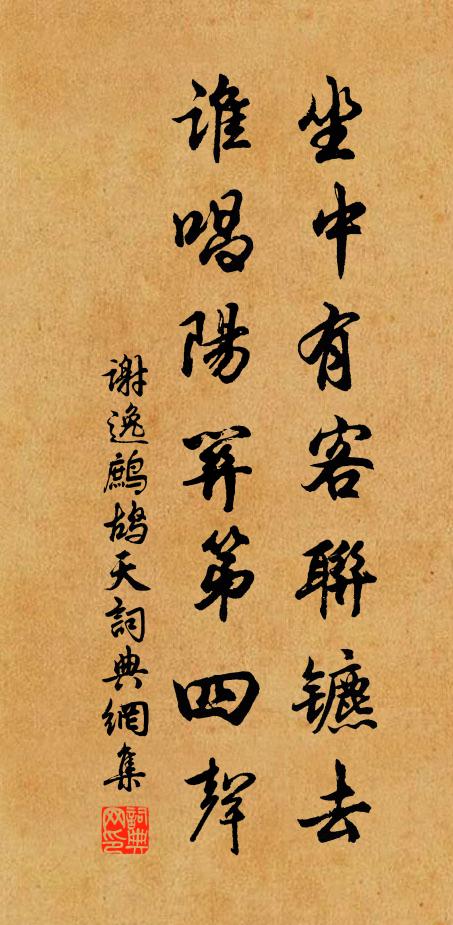 坐中有客聯鑣去
誰唱陽關第四聲
謝逸鷓鴣天詞典網集
詞典網印